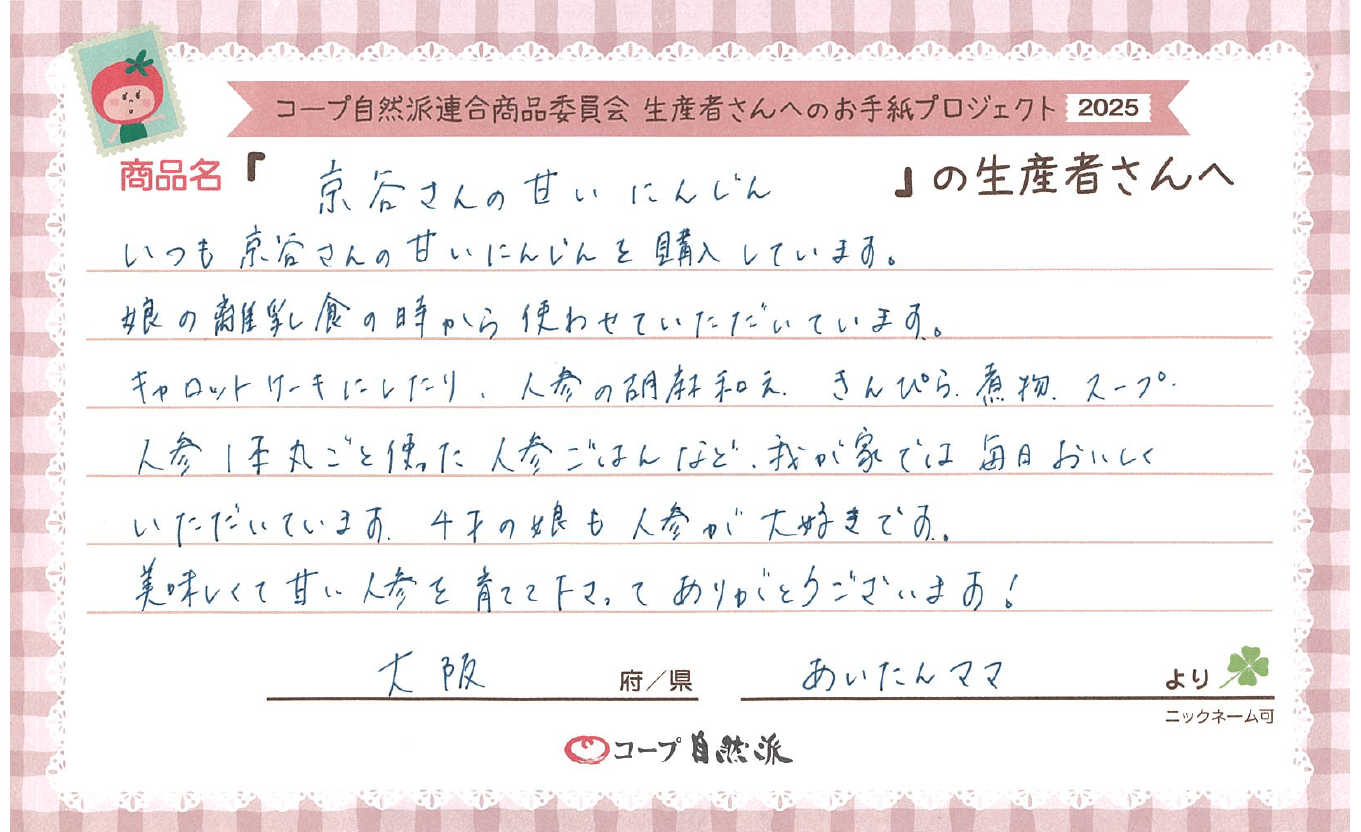 コープ自然派連合商品委員会 生産者さんへのお手紙プロジェクト 2025
商品名『 京谷さんの甘いにんじん 』の生産者さんへ
いつも京谷さんの甘いにんじんを購入しています。
娘の離乳食の時から使わせていただいています。
キャロットケーキにしたり、人参の胡麻和え、きんぴら、煮物、スープ、
人参1本丸ごと使った人参ごはんなど、我が家では毎日おいしく
いただいています。4才の娘も人参が大好きです。
美味しくて甘い人参を育てて下さってありがとうございます!
大阪 府/県 あいたんママ より
ニックネーム可
コープ自然派